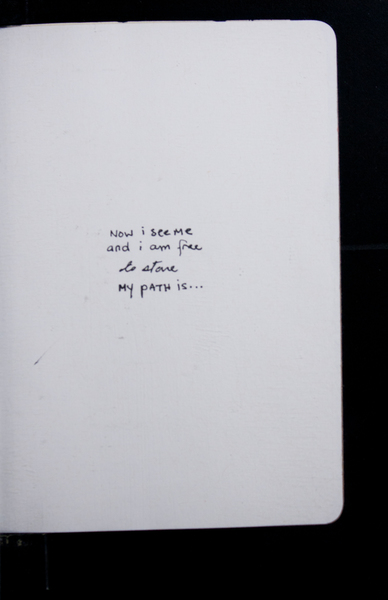 NOW i see Me
and i am free
to stone
MY PATH is...